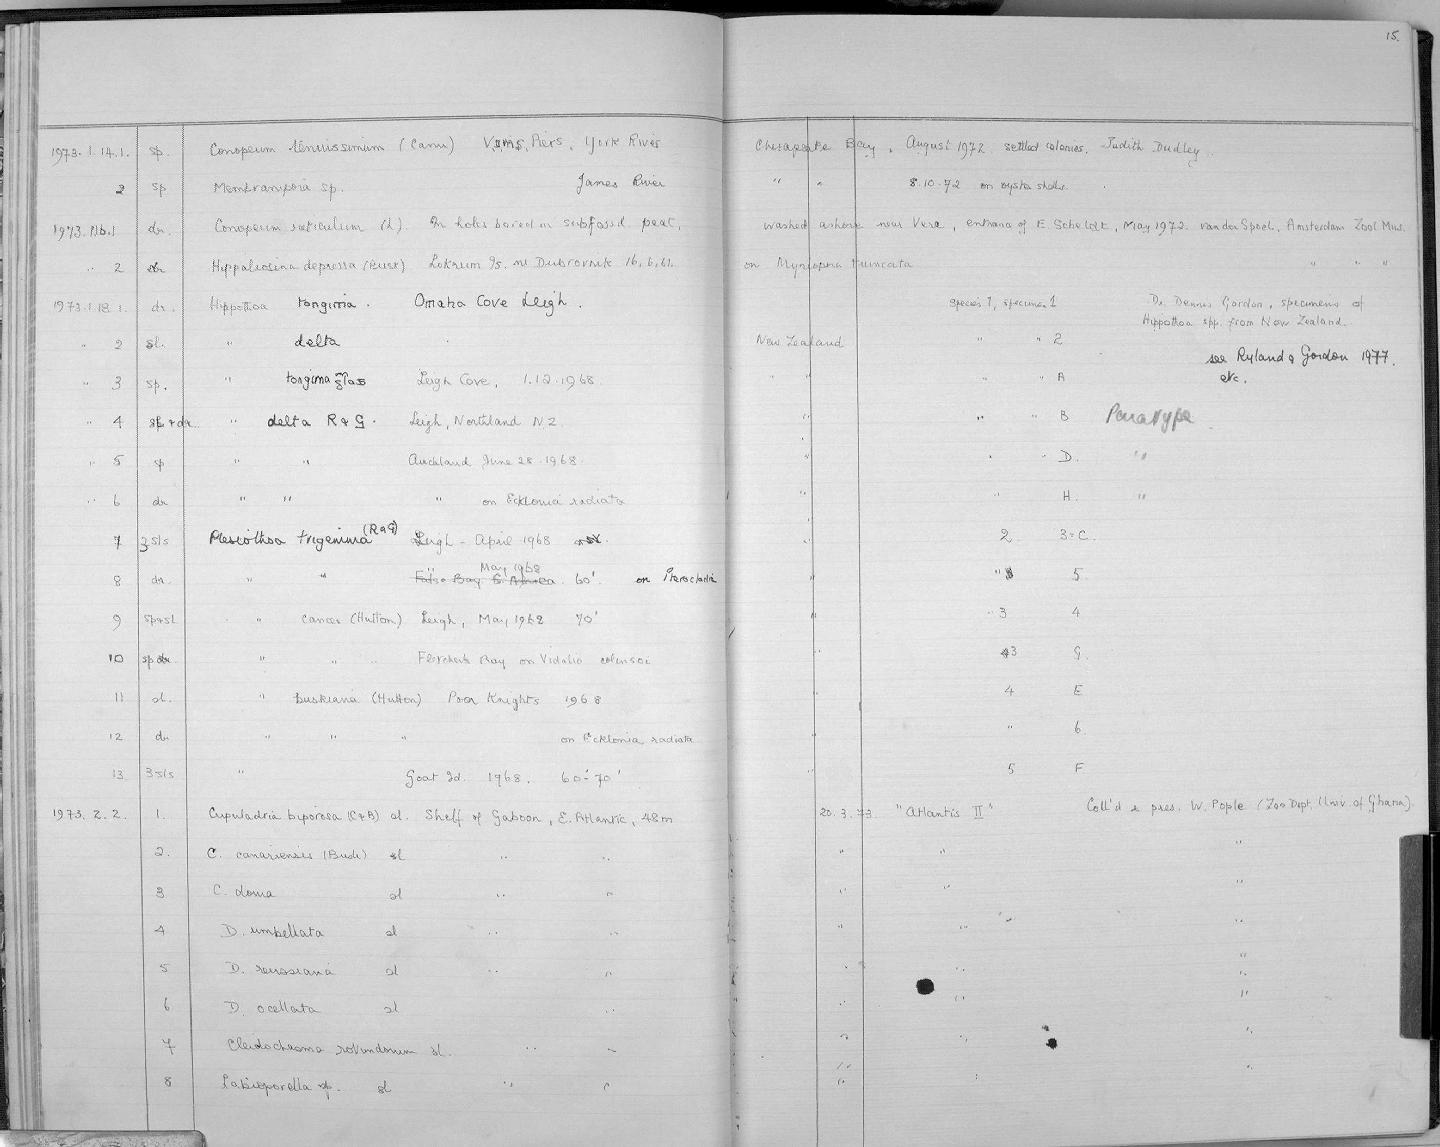 15.
1973.1.14.1. sp. Conopeum tenuissimum (Canu) V.I.M.S. Piers, York River Chesapeake Bay, August 1972 settled colonies. Judith Dudley.
2 sp Membranipora sp. James River " " 8.10.72 on oyster shells.
1973. dr. Conopeum reticulum (L). In holes bored in subfossil peat, washed ashore near Vere, entrance of E. Scheldt, May 1972. van der Spoel, Amsterdam Zool Mus.
" 2 dr Hippaliosina depressa (Busk) Lokrum Is. nr Dubrovnik 16.6.61. on Myriopora truncata " " "
1973.1.18.1. dr. Hippothoa tongima. Omaha Cove Leigh. species 1, specimen 1 Dr. Dennis Gordon, specimens of
Hippothoa spp. from New Zealand.
" 2 sl. " delta New Zealand " " 2
see Ryland & Gordon 1977.
" 3 sp. " tongima Leigh Cove, 1.12.1968. " " " " A etc.
" 4 sl + dr. " delta R & G. Leigh, Northland N Z. " " " B Paratype
" 5 sp " " Auckland June 28.1968. " " " D. "
" 6 dr " " " on Ecklonia radiata " " H. "
7 3 sls Plesiothoa trigemma (R&G) Leigh - April 1968 " 2 3=C.
May 1968
8 dr. " " False Bay S. Africa. 60'. on Pterocladia " " 5.
9 sp+sl " cancer (Hutton) Leigh, May 1962 70' " " 3 4
10 sp dr. " " " Bay on Vidalia colensoi " 3 G.
11 sl. " buskiana (Hutton) Poor Knights 1968 " 4 E
12 dr " " " on Ecklonia radiata " 6.
13. 3 sls " Goat Id. 1968. 60-70' " 5 F
1973. 2. 2. 1. Cupuladria biporosa (C&B) sl. Shelf of Gaboon, E. Atlantic, 48m 20.3.73. "Atlantis II" Coll'd & pres. W. Pople (Zoo Dept, Univ. of Ghana).
2. C. canariensis (Busk) sl " " " " "
3 C. doma sl " " " " "
4 D. umbellata sl " " " " "
5 D. reussiana sl " " " " "
6 D. ocellata sl " " " "
7 Cleidochasma rotundorum sl. " " " " "
8 Labioporella sp. sl " " " " "